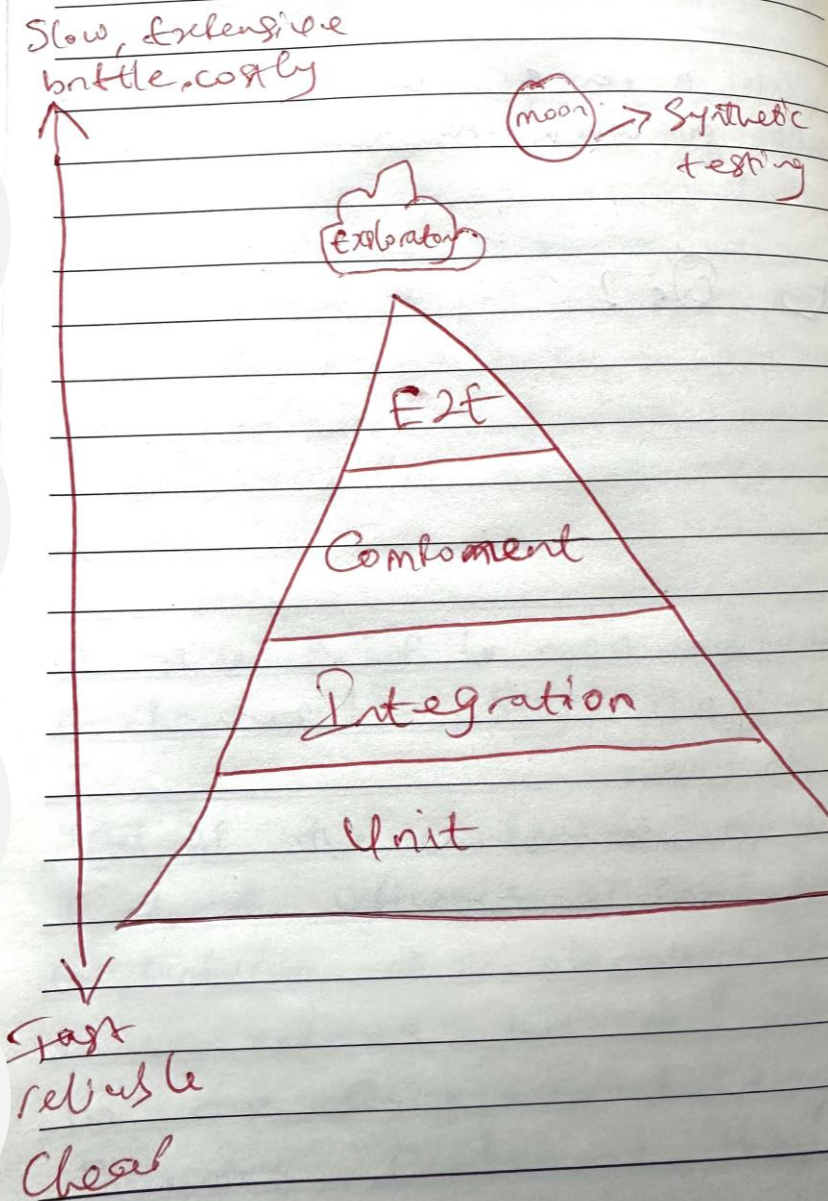 Slow, Extensive
brittle, costly
moon → Synthetic
testing
Exploratory
E2E
Component
Integration
Unit
Fast
reliable
Cheap